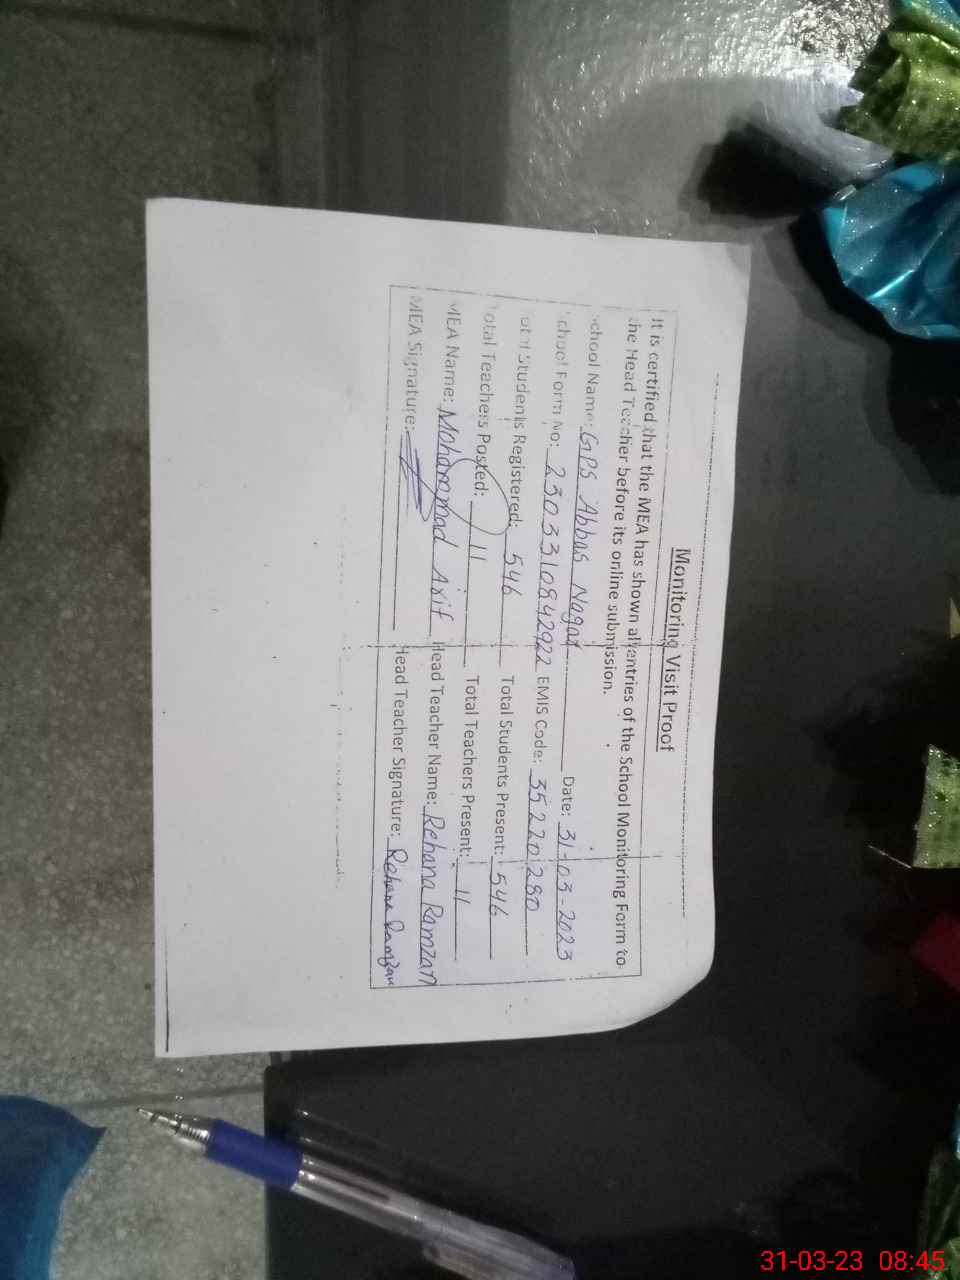 Monitoring Visit Proof
It is certified that the MEA has shown all entries of the School Monitoring Form to
the Head Teacher before its online submission.
School Name: GPS Abbas Nagar Date: 31-03-2023
School Form No: 2303310842922 EMIS Code: 35220280
Total Students Registered: 546 Total Students Present: 546
Total Teachers Posted: 11 Total Teachers Present: 11
MEA Name: Mohammad Arif Head Teacher Name: Rehana Ramzan
MEA Signature: Head Teacher Signature: Rehana Ramzan
31-03-23 08:45